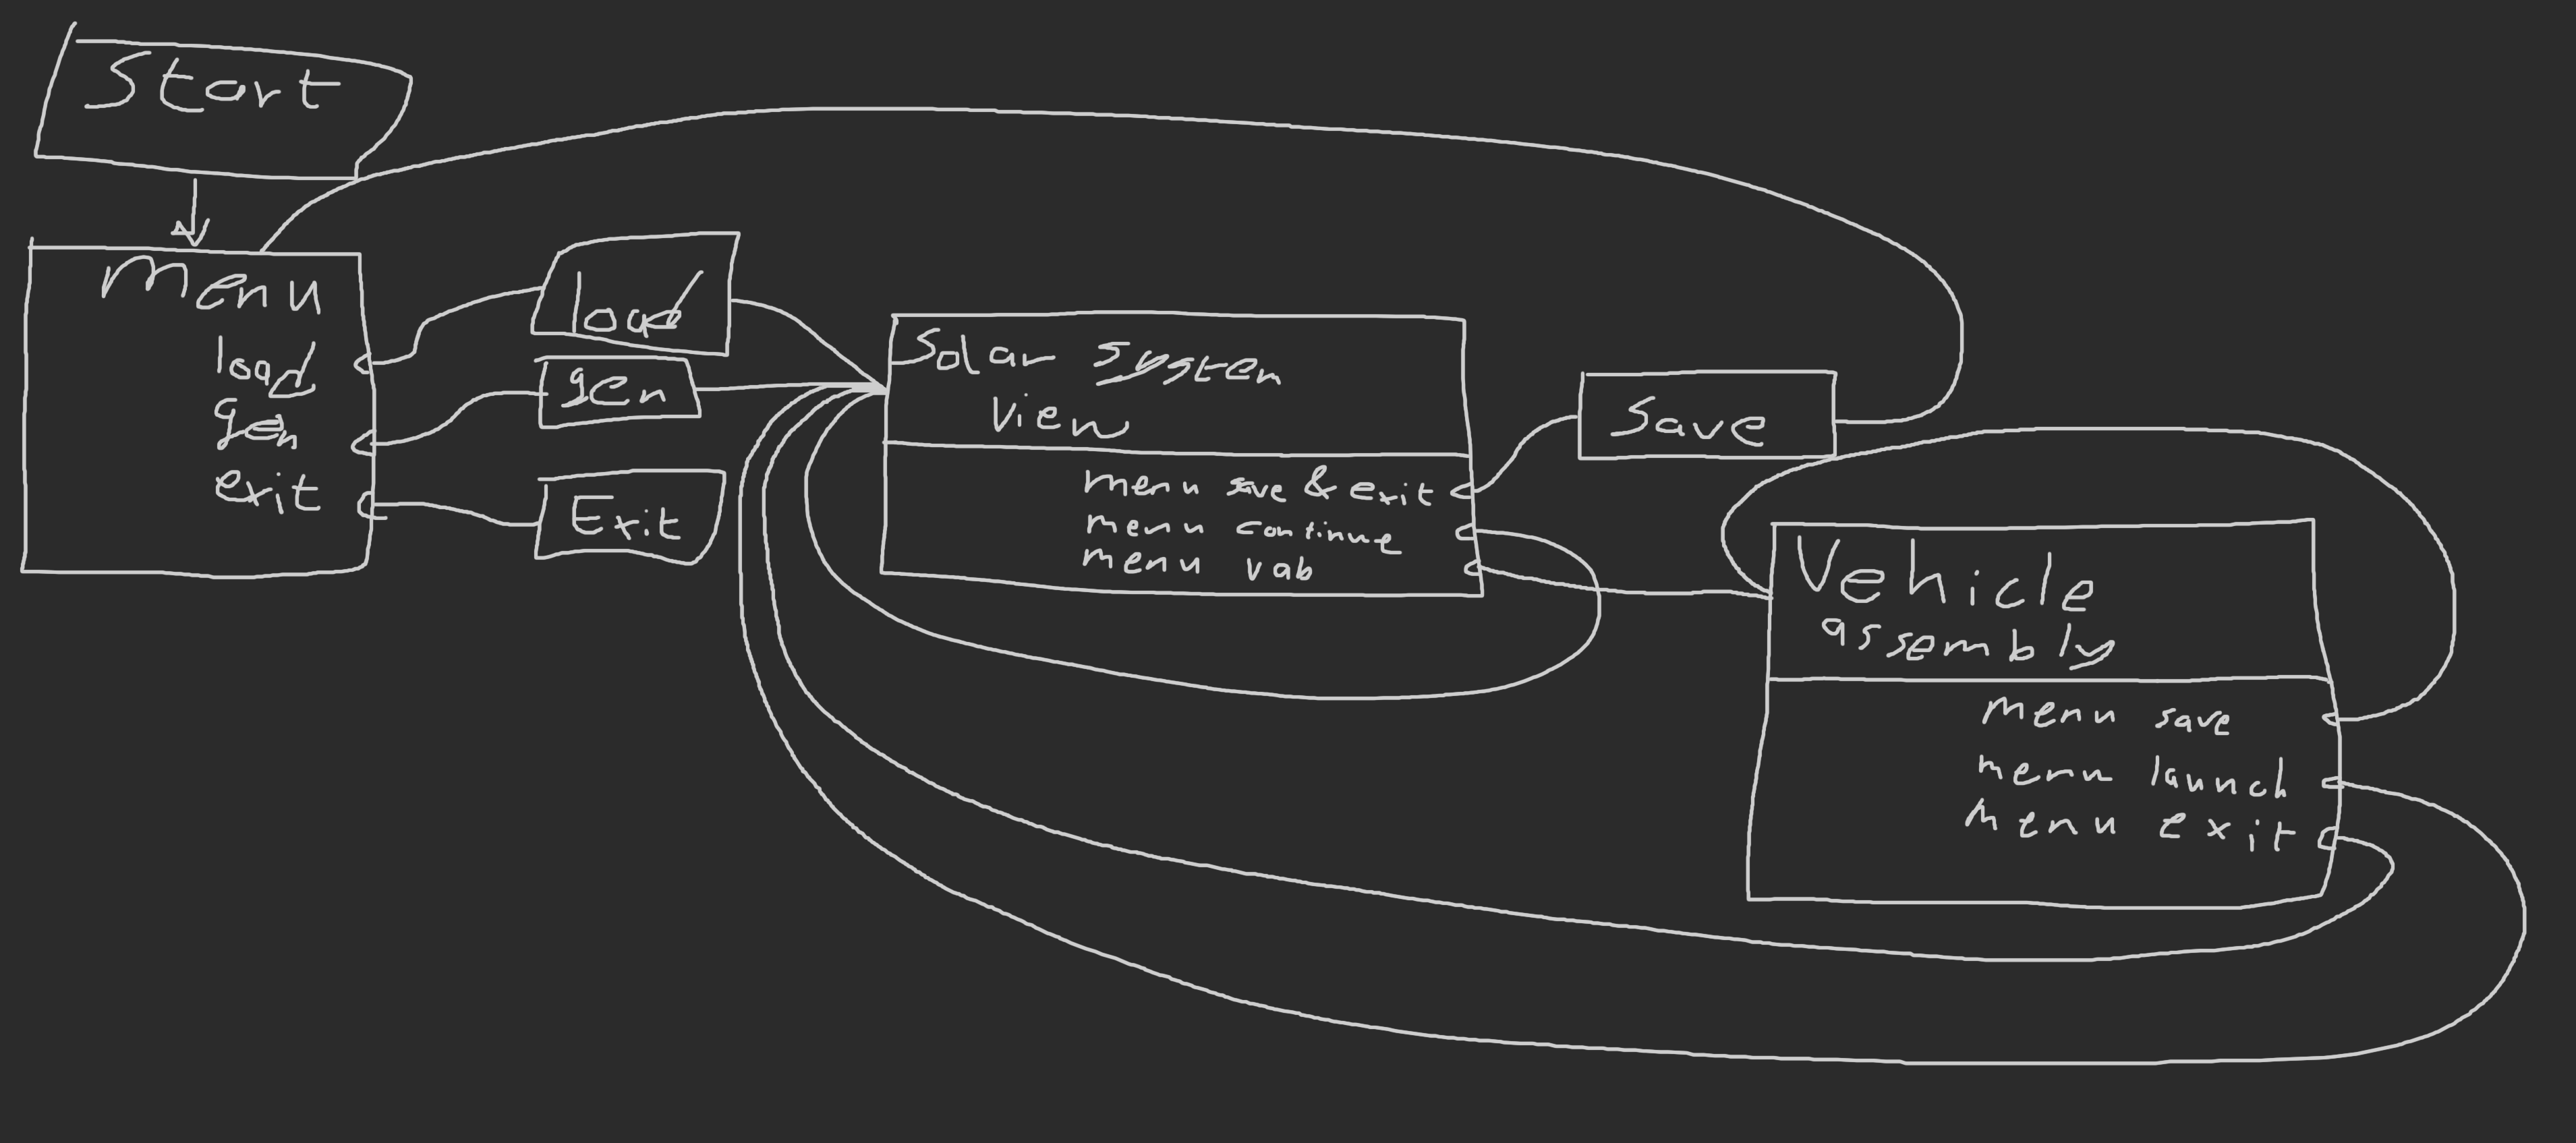 Start
Menu
load
gen
exit
load
gen
Exit
Solar system
View
menu save & exit
menu continue
menu vab
Save
Vehicle
assembly
menu save
menu launch
menu exit